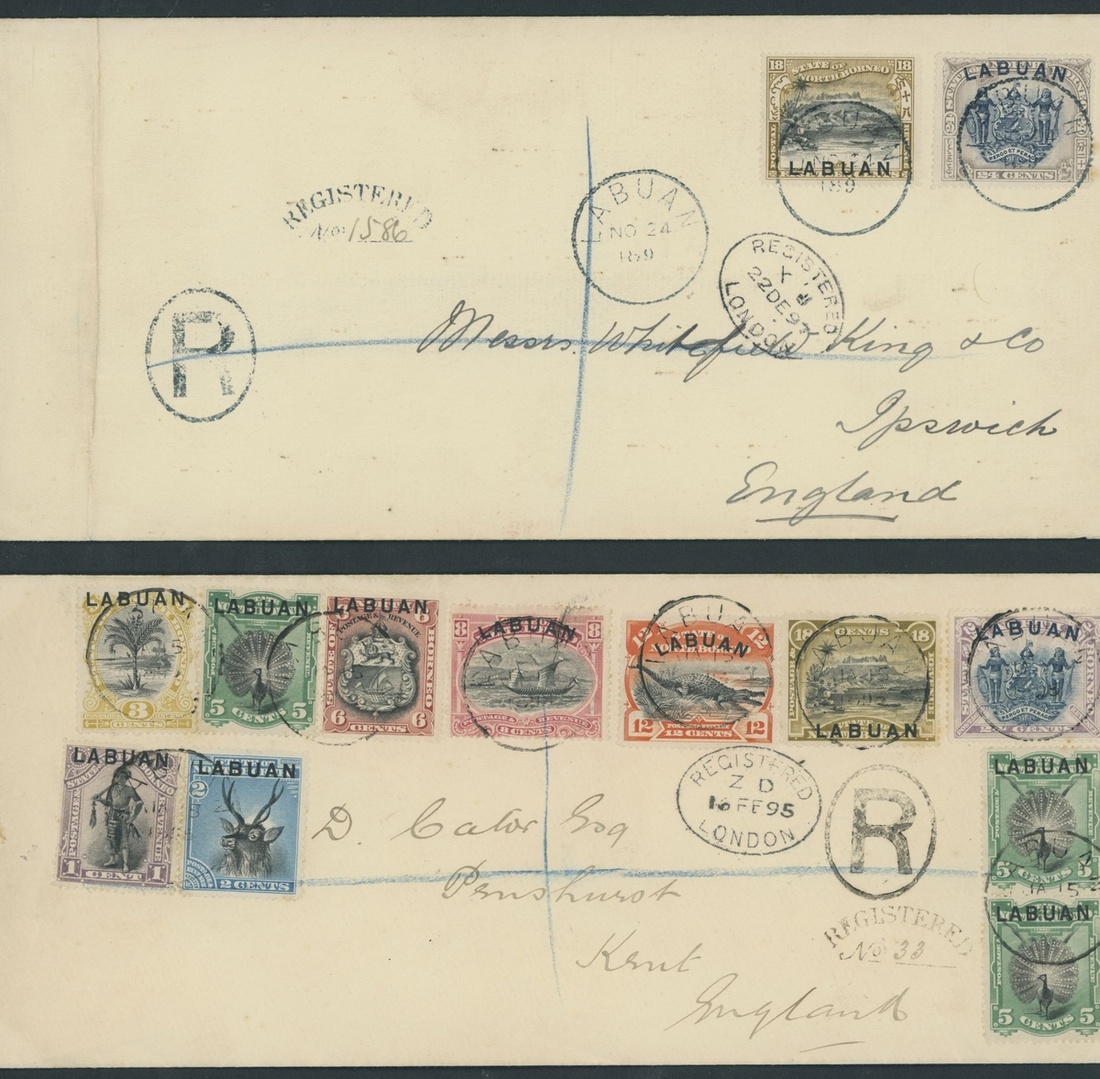 18 STATE OF 18
NORTH BORNEO
LABUAN
POSTAL
LABUAN
24 CENTS
PERGO ET PERAGO
NO 24
189
REGISTERED
No. 1586
LABUAN
NO 24
189
REGISTERED
22 DE 97
LONDON
R
Messrs. Whitefield King & Co
Ipswich
England
LABUAN
3
CENTS
LABUAN
5 CENTS 5
LABUAN
POSTAGE & REVENUE
STATE OF
BORNEO
6 CENTS 6
LABUAN
8 8
POSTAGE & REVENUE
8 CENTS
LABUAN
12 12
12 CENTS 12
18 CENTS 18
LABUAN
LABUAN
LABUAN
POSTAGE &
REVENUE
1 CENT 1
LABUAN
2
2 CENTS
REGISTERED
Z D
16 FE 95
LONDON
R
D. Cator Esq
Penshurst
Kent
England
REGISTERED
No 33
LABUAN
5 CENTS 5
JA 15
LABUAN
5 CENTS 5